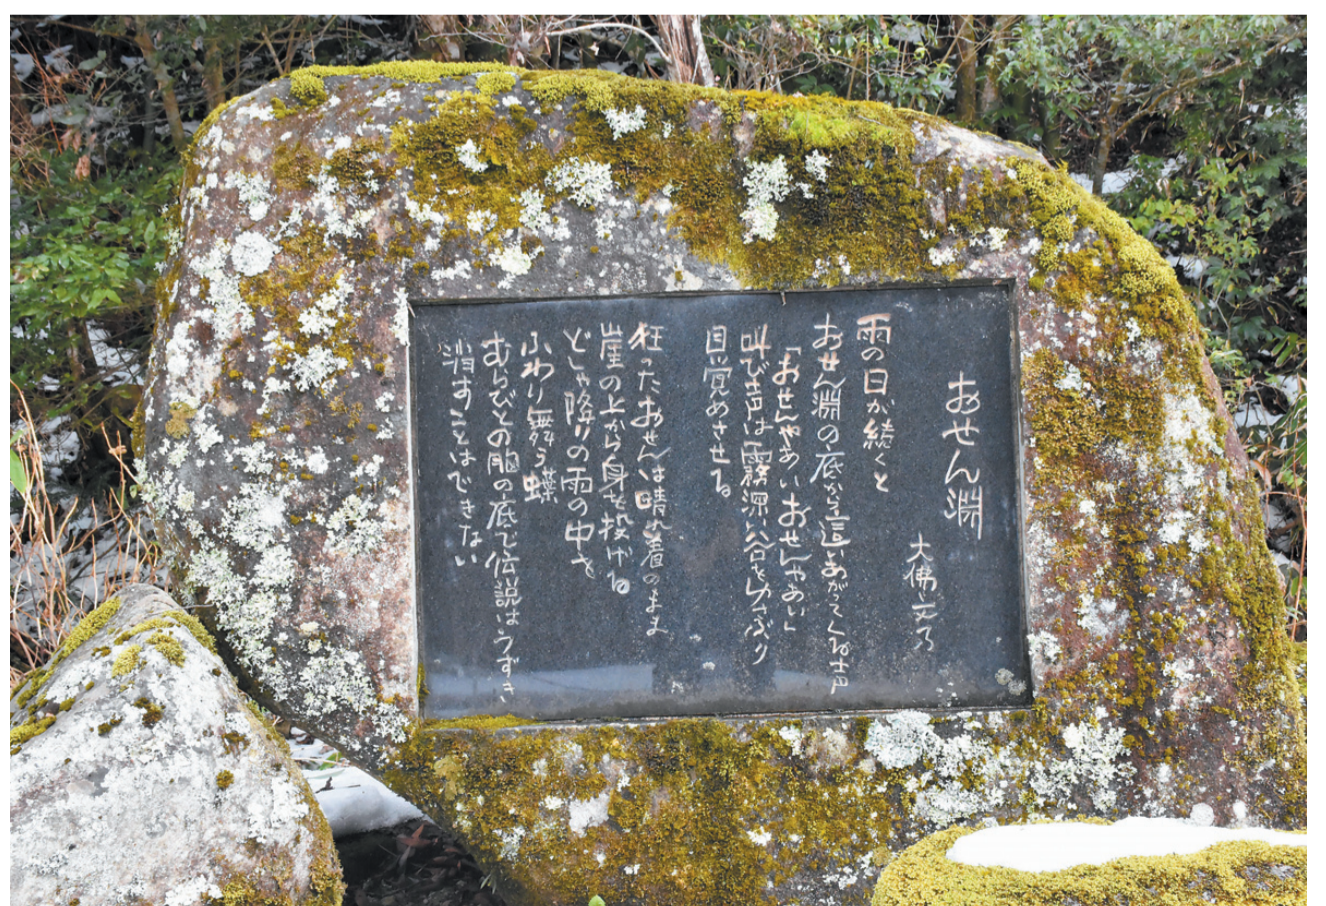 おせん淵
大佛文乃
雨の日が続くと
おせん淵の底から這いあがってくる声
「おせんやあい おせんやあい」
叫び声は霧深い谷をゆさぶり
目覚めさせる
狂ったおせんは晴れ着のまま
崖の上から身を投げる
どしゃ降りの雨の中を
ふわり舞う蝶
むらびとの胸の底で伝説はうずき
消すことはできない